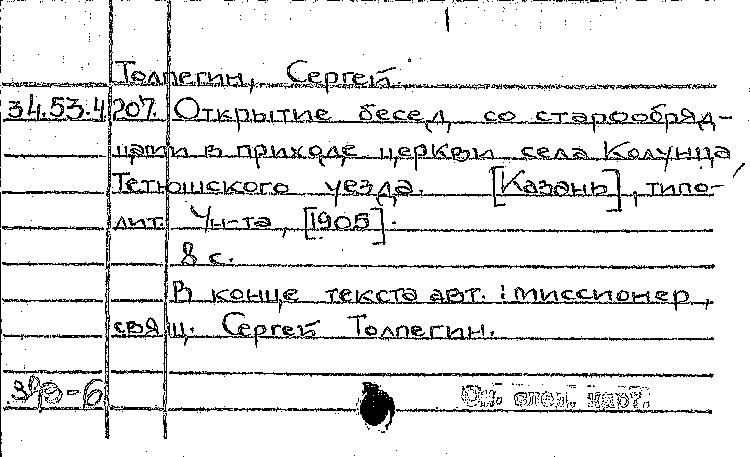 Толпегин, Сергей.
34.53.4 207. Открытие бесед, со старообряд-
цами в приходе церкви села Колунца,
Тетюшского уезда. [Казань], типо-
лит. Ун-та, [1905].
8 с.
В конце текста авт.: миссионер,
свящ. Сергей Толпегин.
См. спец. карт.